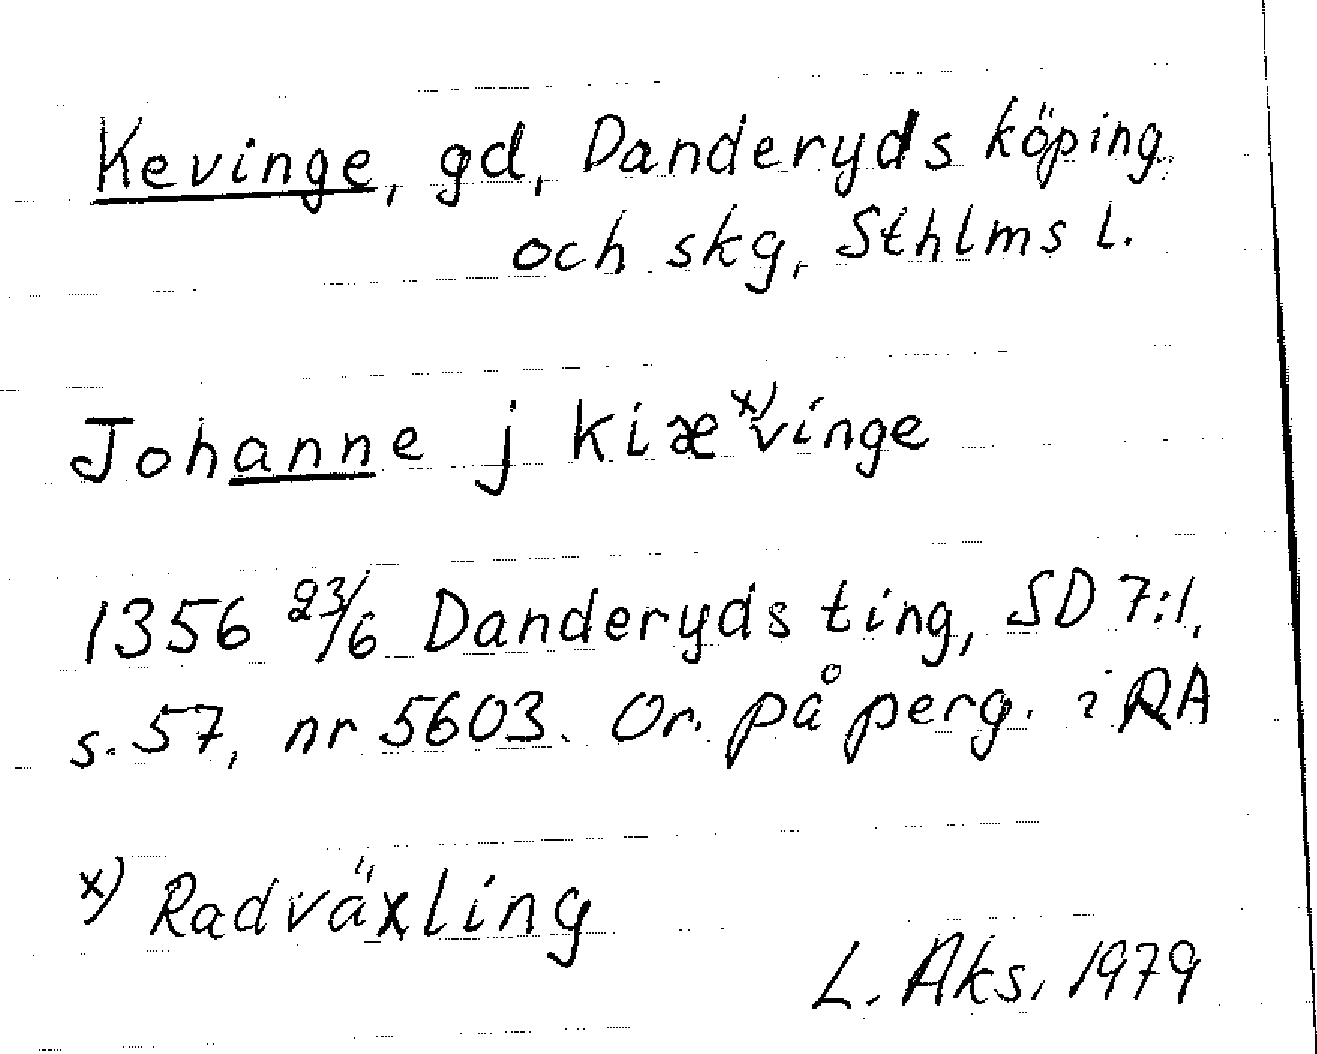 Kevinge, gd, Danderyds köping
och skg, Sthlms l.
Johanne j kiæ x) vinge
1356 23/6 Danderyds ting, SD 7:1,
s. 57, nr 5603. Or. på perg. i RA
x) Radväxling
L. Aks. 1979